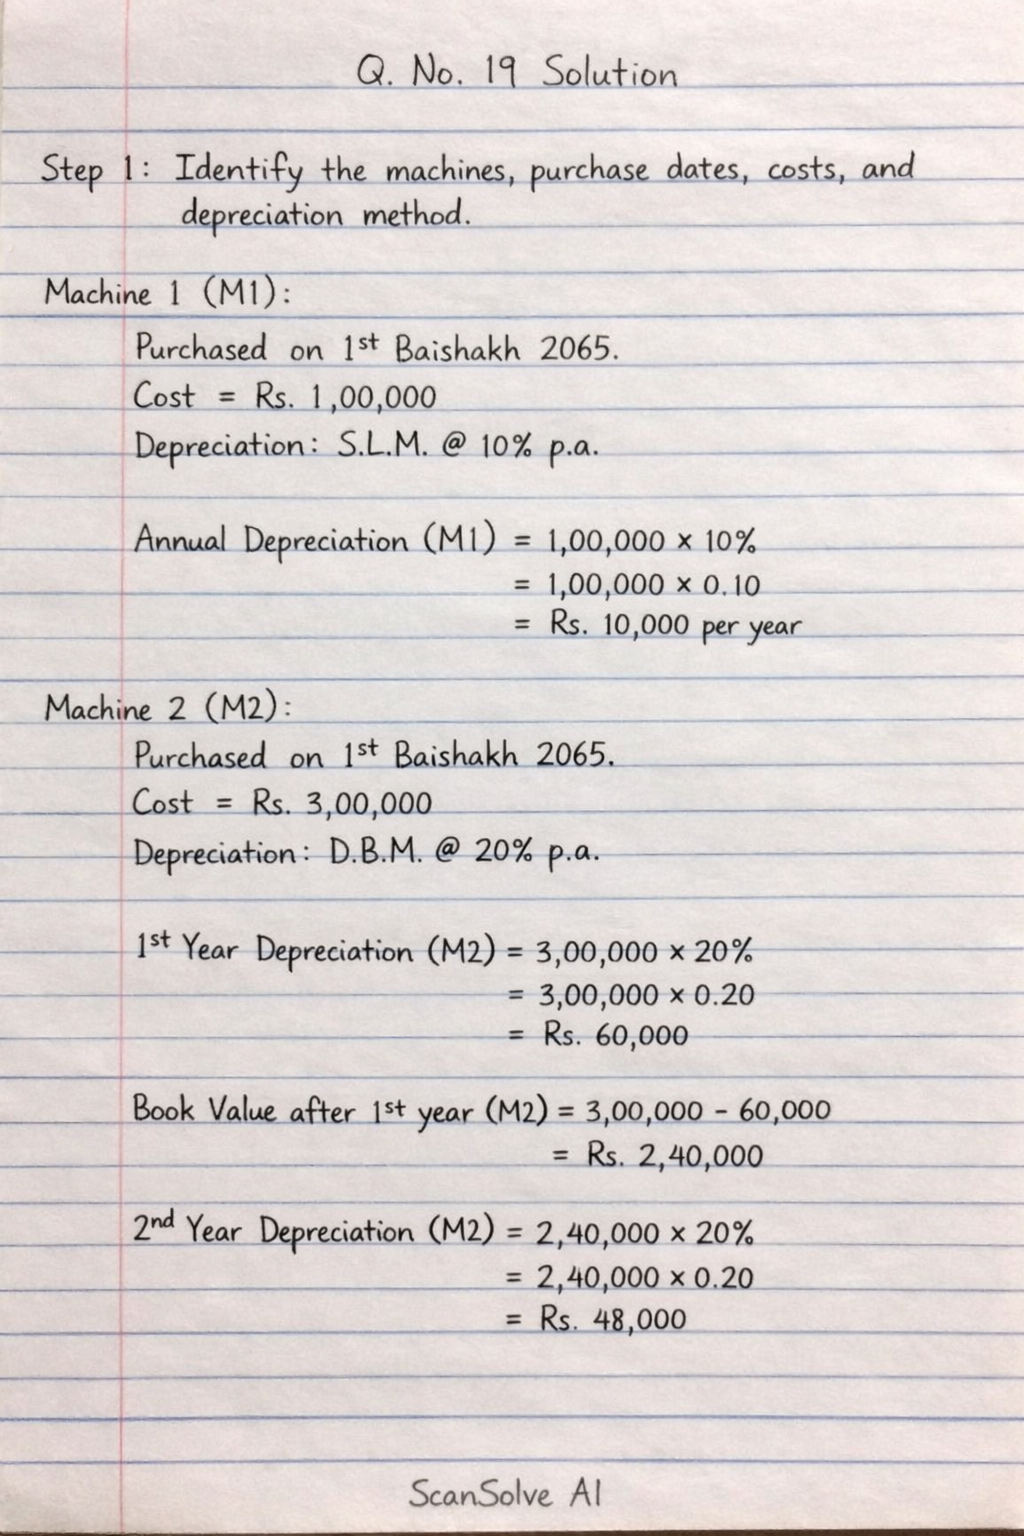 Q. No. 19 Solution
Step 1: Identify the machines, purchase dates, costs, and
depreciation method.
Machine 1 (M1):
Purchased on 1st Baishakh 2065.
Cost = Rs. 1,00,000
Depreciation: S.L.M. @ 10% p.a.
Annual Depreciation (M1) = 1,00,000 × 10%
= 1,00,000 × 0.10
= Rs. 10,000 per year
Machine 2 (M2):
Purchased on 1st Baishakh 2065.
Cost = Rs. 3,00,000
Depreciation: D.B.M. @ 20% p.a.
1st Year Depreciation (M2) = 3,00,000 × 20%
= 3,00,000 × 0.20
= Rs. 60,000
Book Value after 1st year (M2) = 3,00,000 - 60,000
= Rs. 2,40,000
2nd Year Depreciation (M2) = 2,40,000 × 20%
= 2,40,000 × 0.20
= Rs. 48,000
ScanSolve AI